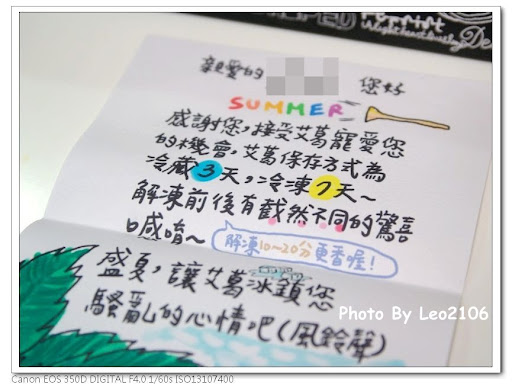 親愛的 您好
SUMMER
感謝您，接受艾葛寵愛您
的機會，艾葛保存方式為
冷藏3天，冷凍7天~
解凍前後有截然不同的驚喜
口感唷~
解凍10~20分更香喔！
盛夏，讓艾葛冰鎮您
騷亂的心情吧(風鈴聲)
Photo By Leo2106
Canon EOS 350D DIGITAL F4.0 1/60s ISO13107400